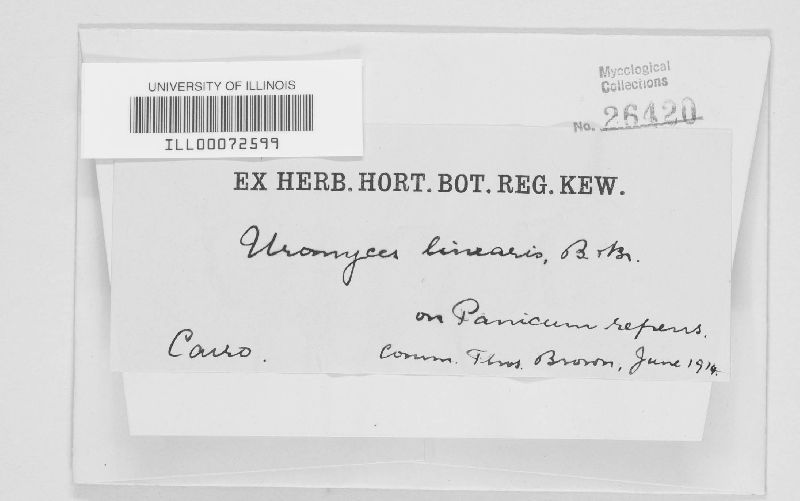 UNIVERSITY OF ILLINOIS
ILL00072599
Mycological
Collections
No. 26420
EX HERB. HORT. BOT. REG. KEW.
Uromyces linearis, B. & Br.
on Panicum repens.
Cairo.
Comm. Thos. Brown, June 1914.